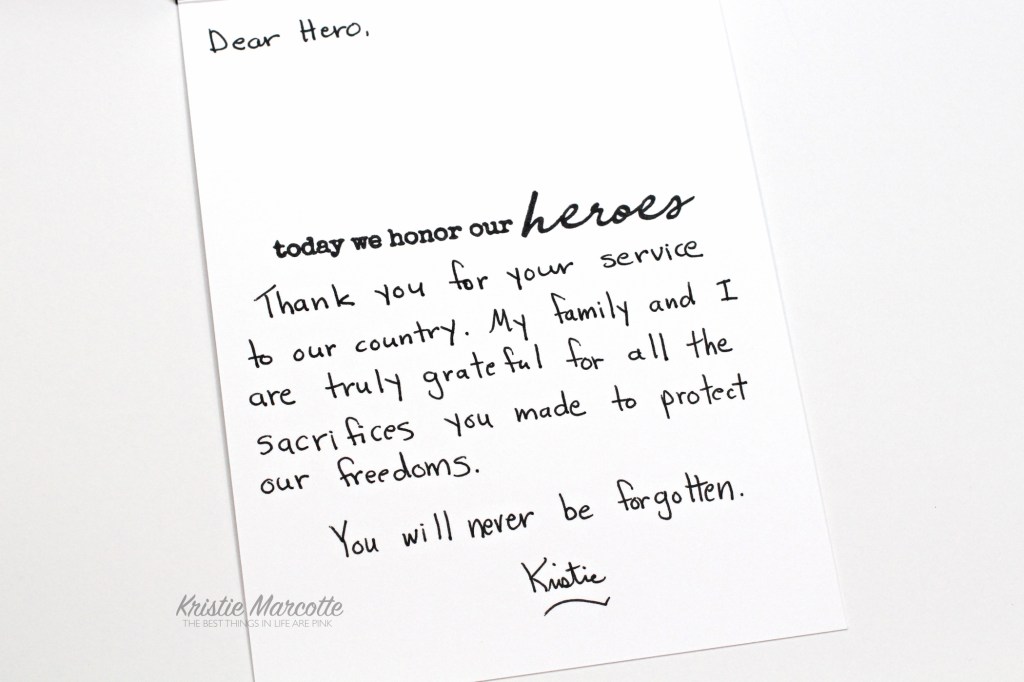 Dear Hero,
today we honor our heroes
Thank you for your service
to our country. My family and I
are truly grateful for all the
sacrifices you made to protect
our freedoms.
You will never be forgotten.
Kristie
Kristie Marcotte
THE BEST THINGS IN LIFE ARE PINK